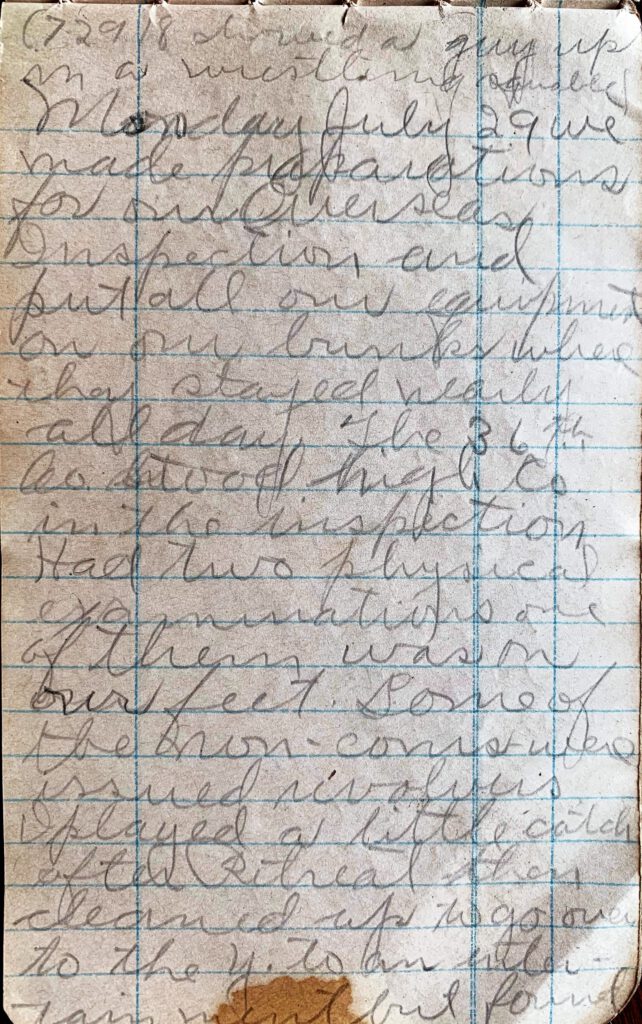 (7 29 18 showed a guy up
in a wrestling squabble)
Monday July 29 we
made preparations
for our Overseas
Inspection and
put all our equipment
on our bunks where
they stayed nearly
all day. The 36th
Co stood high Co
in the inspection.
Had two physical
examinations one
of them was on
our feet. Some of
the non-coms were
issued revolvers
I played a little catch
after Retreat then
cleaned up to go over
to the Y. to an enter-
tainment but found